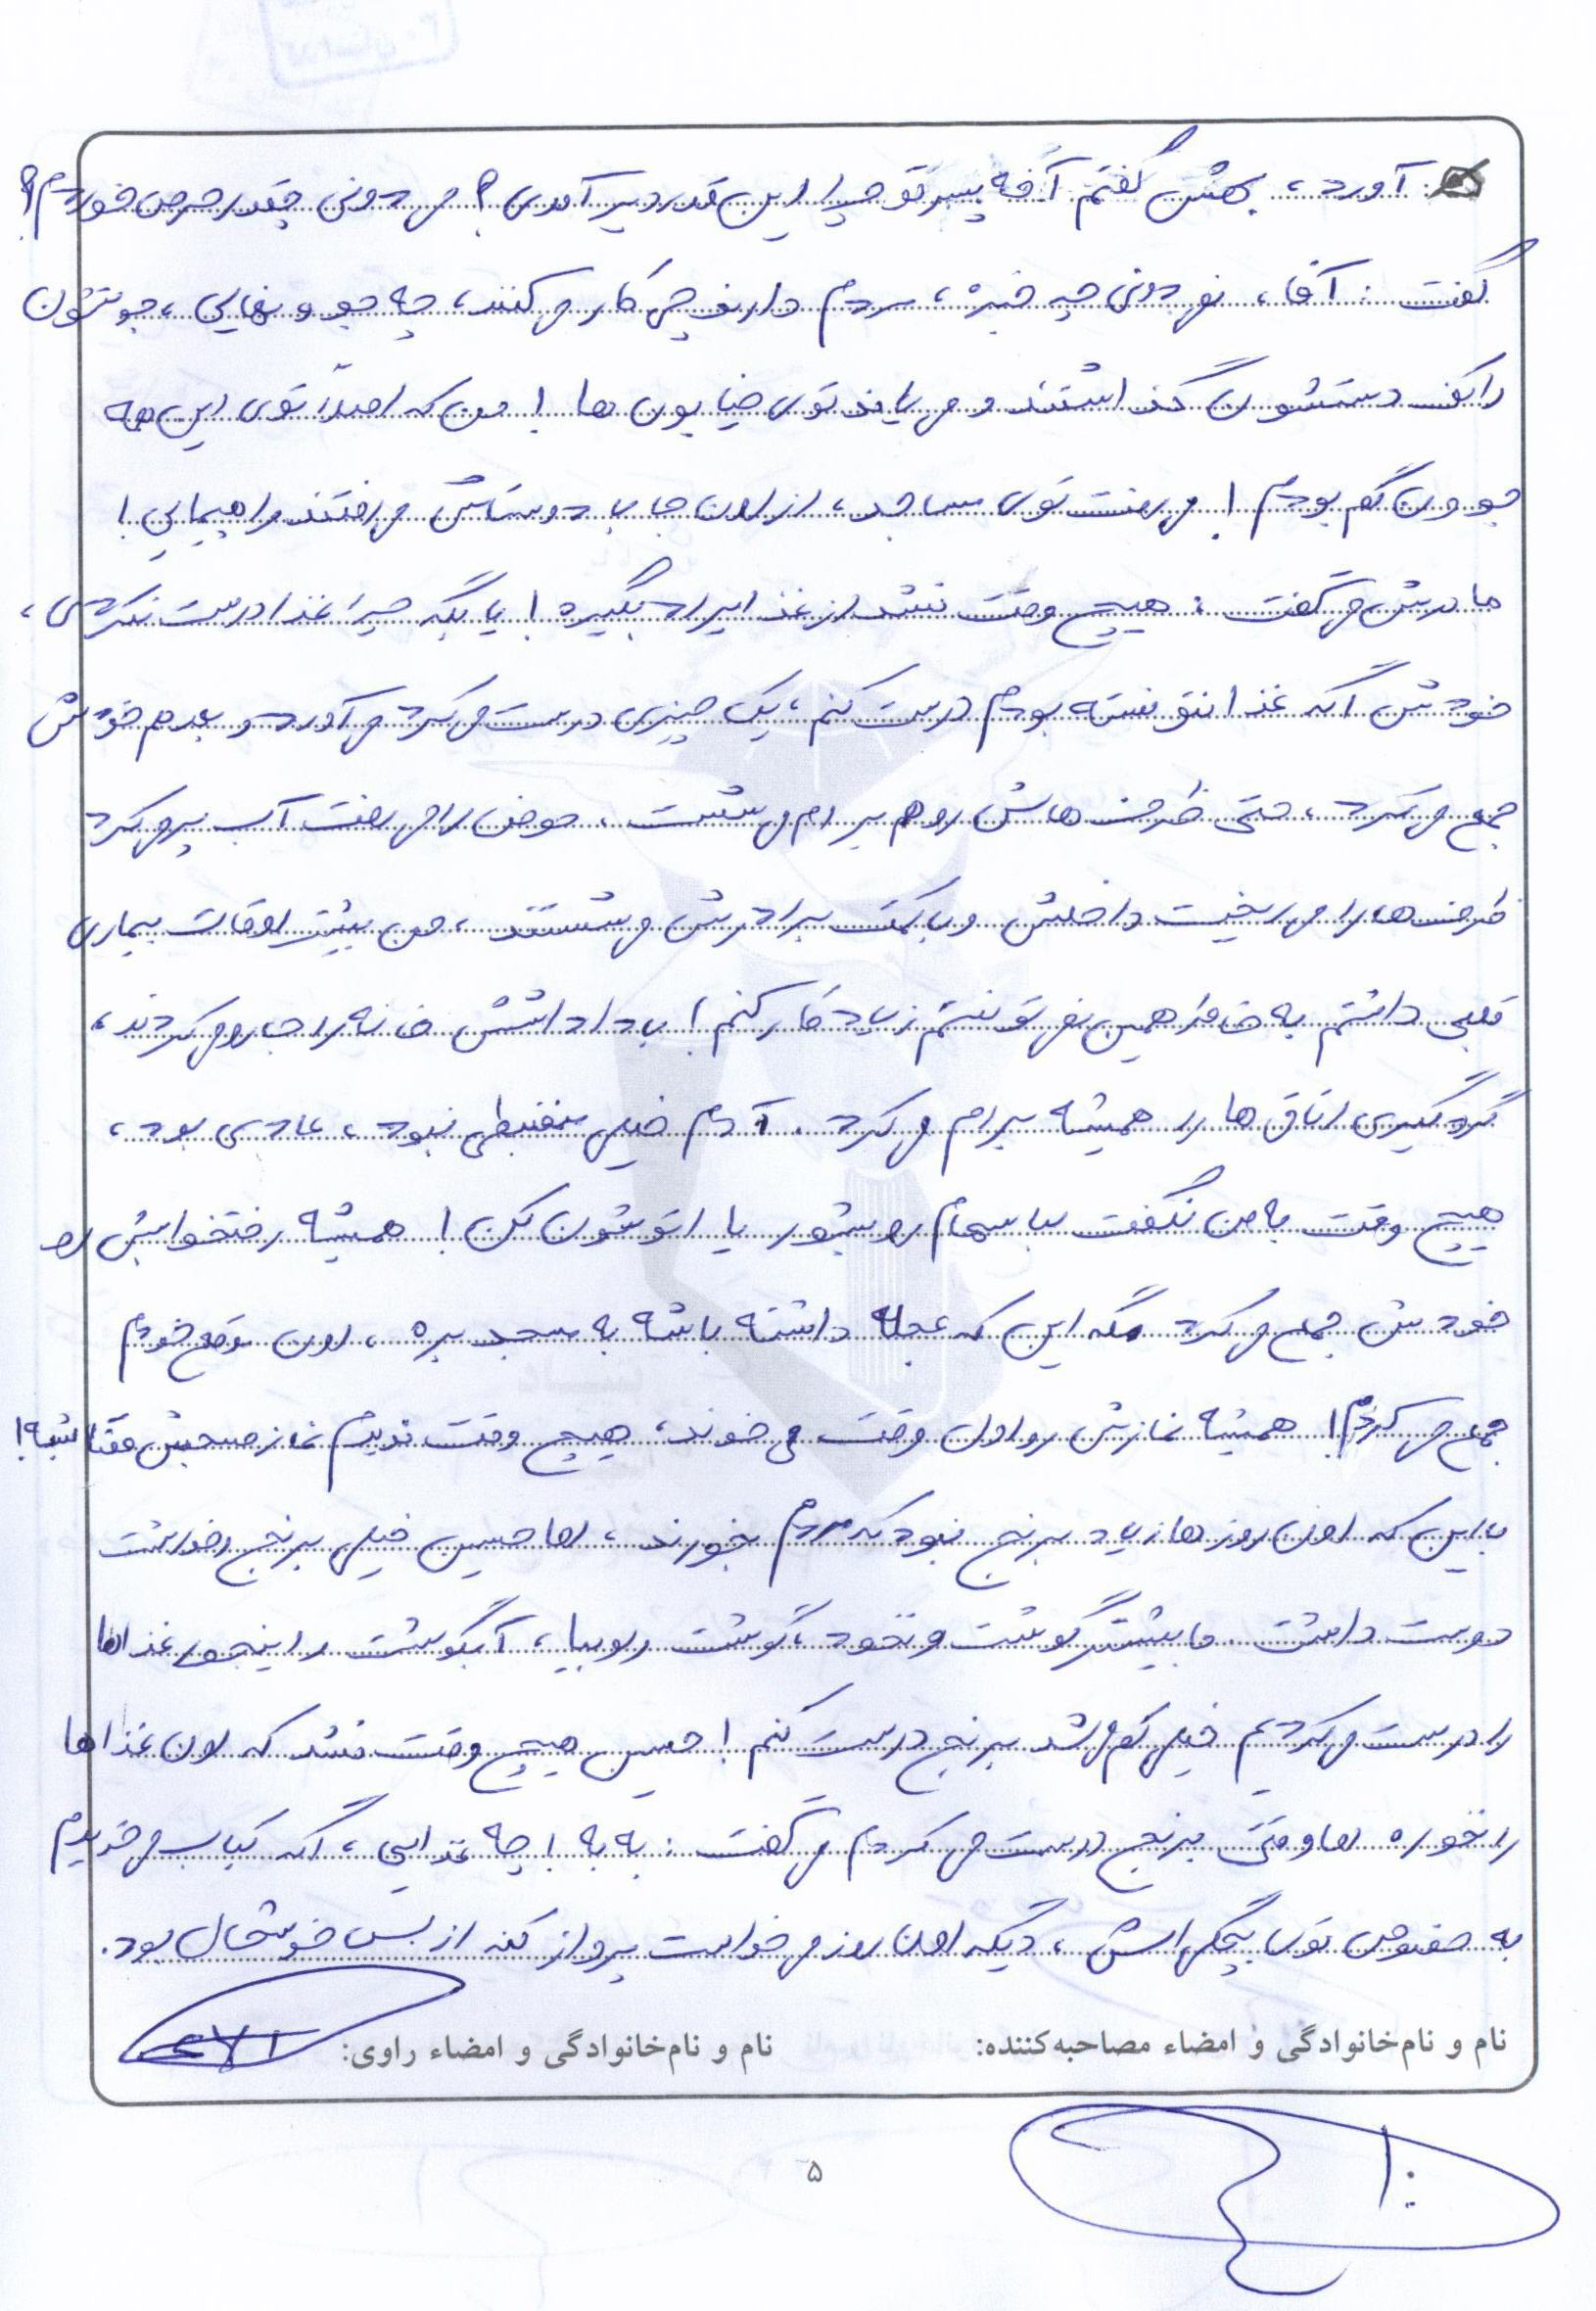 آورد، بهش گفتم آخه پسر تو چرا این قدر دیر آمدی؟ می دونی چقدر حرص خوردم؟
گفت: آقا، نمی دونی چه خبره، مردم دارند چی کار می کنند، چه جوونهایی، جونشون
را کف دستشون گذاشتند و می یاند توی خیابون ها! من که اصلاً توی این همه
جوون گم بودم! می رفت توی مساجد، از اون جا با دوستاش می رفتند راهپیمایی!
مادرش می گفت: هیچ وقت نشد از غذا ایراد بگیره! یا بگه چرا غذا درست نکردی،
خودش اگه غذا نتونسته بودم درست کنم، یک چیزی درست می کرد می آورد و بعدم خودش
جمع می کرد، حتی ظرف هاش رو هم برام می شست. حوض را می رفت آب پر می کرد
ظرف ها را می ریخت داخلش و با کمک برادرش می شستند، من بیشتر اوقات بیماری
قلبی داشتم به خاطر همین نمی تونستم زیاد کار کنم! با داداشش خانه را جارو می کردند،
گردگیری اتاق ها را همیشه برام می کرد. آدم خیلی منضبطی نبود، عادی بود،
هیچ وقت به من نگفت لباسهام رو بشور یا اتوشون کن! همیشه رختخوابش رو
خودش جمع می کرد مگه این که عجله داشته باشه به مسجد بره، اون موقع خودم
جمع می کردم! همیشه نمازش رو اول وقت می خوند، هیچ وقت ندیدم نماز صبحش قضا بشه!
با این که اون روزها زیاد برنج نبود که مردم بخورند، اما حسین خیلی برنج خورشت
دوست داشت. ما بیشتر گوشت و نخود، گوشت و لوبیا، آبگوشت و اینجور غذاها
را درست می کردیم خیلی کم می شد برنج درست کنم! حسین هیچ وقت نشد که اون غذاها
را نخوره اما وقتی برنج درست می کردم می گفت: به به! چه غذایی، اگه کباب می خریدم
به خصوص توی بچگی اش، دیگه اون روز می خواست پرواز کنه از بس خوشحال بود.
نام و نام‌خانوادگی و امضاء مصاحبه‌کننده: نام و نام‌خانوادگی و امضاء راوی:
۵